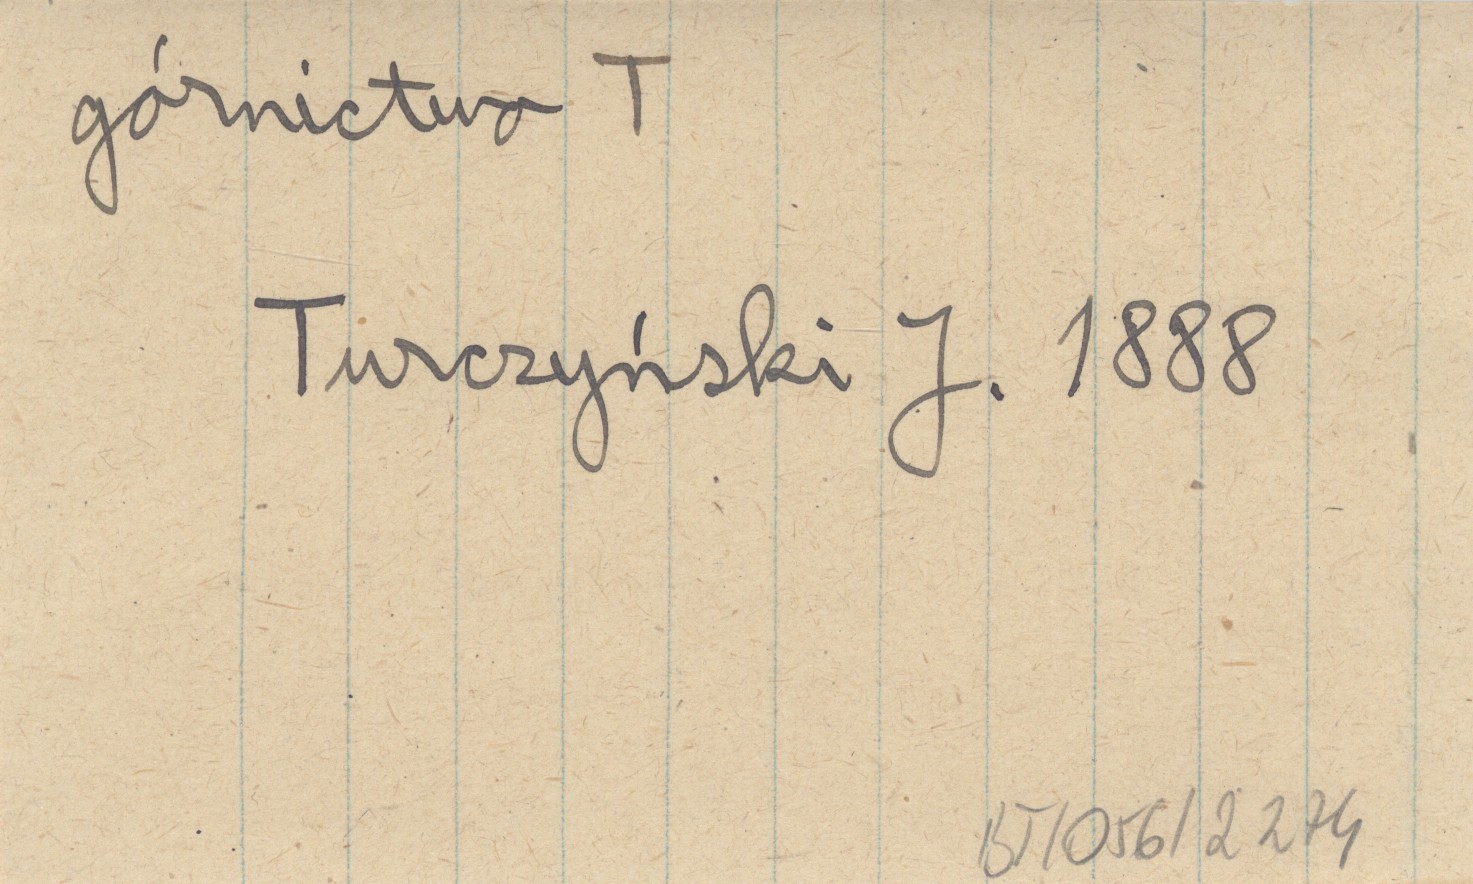 górnictwo T
Turczyński J. 1888
BT/056/2274